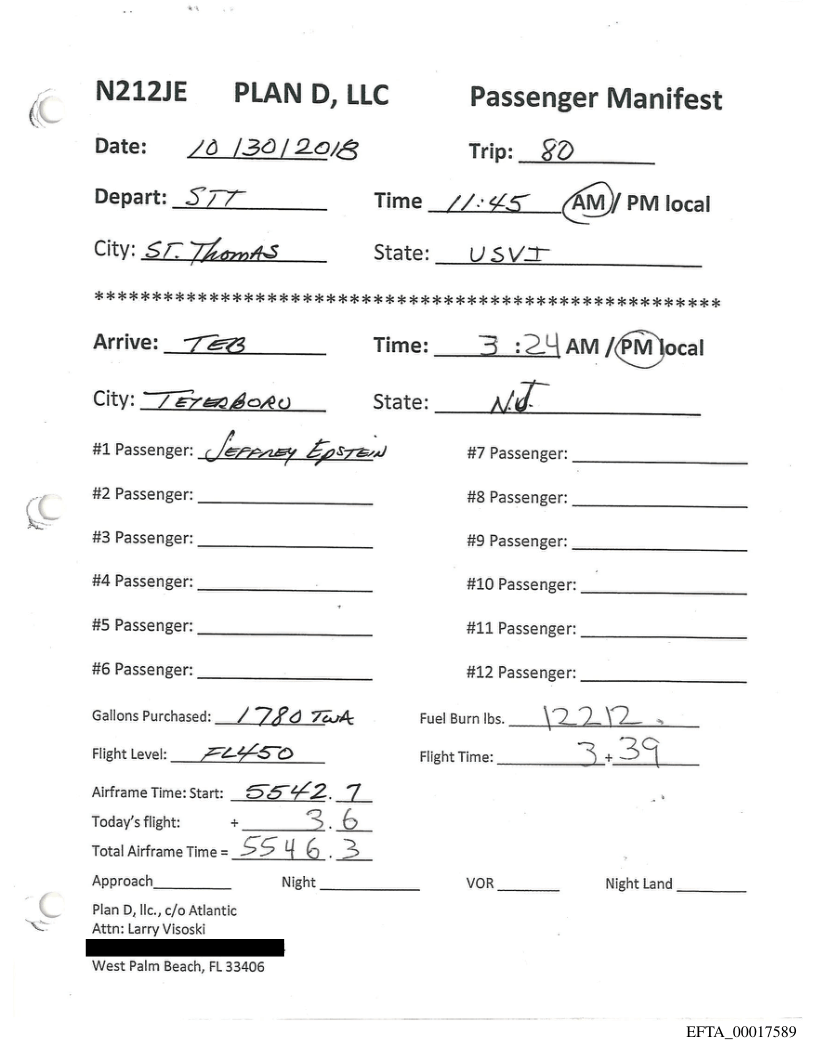 N212JE PLAN D, LLC Passenger Manifest
Date: 10/30/2018 Trip: 80
Depart: STT Time 11:45 AM / PM local
City: ST. THOMAS State: USVI
******************************************************
Arrive: TEB Time: 3:24 AM / PM local
City: TETERBORO State: N.J.
#1 Passenger: JEFFREY EPSTEIN #7 Passenger:
#2 Passenger: #8 Passenger:
#3 Passenger: #9 Passenger:
#4 Passenger: #10 Passenger:
#5 Passenger: #11 Passenger:
#6 Passenger: #12 Passenger:
Gallons Purchased: 1780 TWA Fuel Burn lbs. 12212.
Flight Level: FL450 Flight Time: 3+39
Airframe Time: Start: 5542.7
Today's flight: + 3.6
Total Airframe Time = 5546.3
Approach Night VOR Night Land
Plan D, llc., c/o Atlantic
Attn: Larry Visoski
West Palm Beach, FL 33406
EFTA_00017589